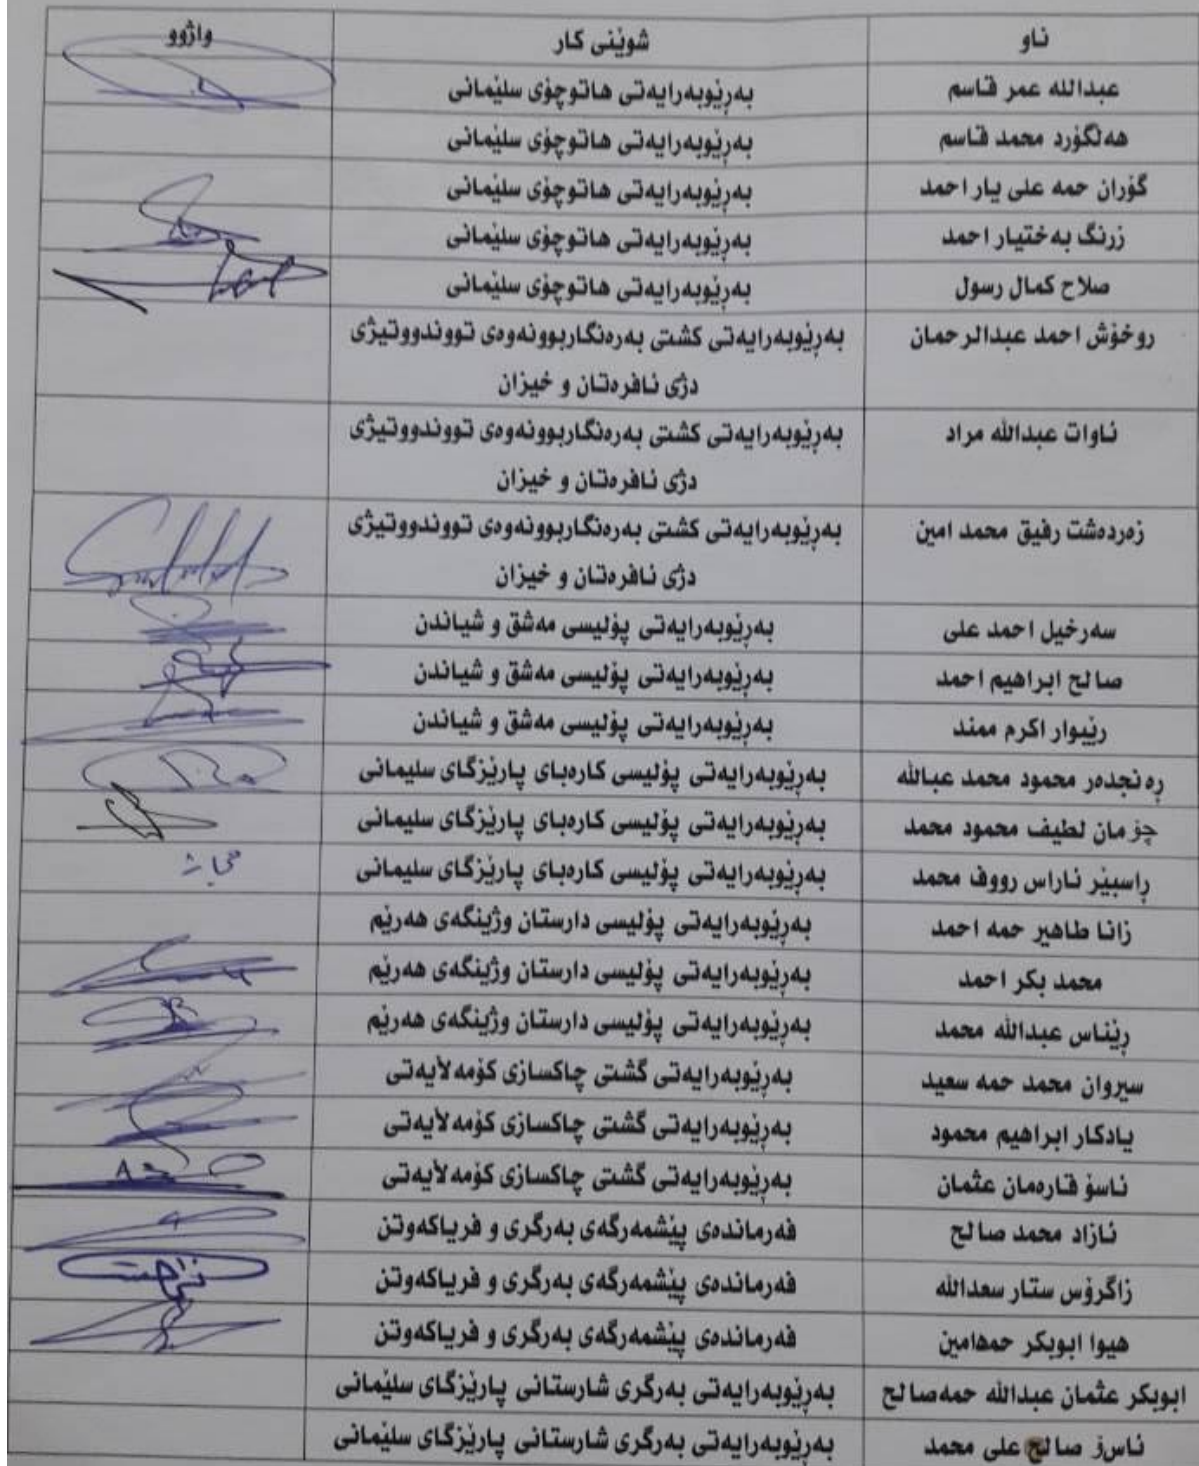 ناو شوێنی کار واژوو
عبدالله عمر قاسم بەڕێوبەرایەتی هاتوچۆی سلێمانی
هەلگۆرد محمد قاسم بەڕێوبەرایەتی هاتوچۆی سلێمانی
گۆران حمه علی یار احمد بەڕێوبەرایەتی هاتوچۆی سلێمانی
زرنگ بەختیار احمد بەڕێوبەرایەتی هاتوچۆی سلێمانی
صلاح کمال رسول بەڕێوبەرایەتی هاتوچۆی سلێمانی
روخۆش احمد عبدالرحمان بەڕێوبەرایەتی کشتی بەرەنگاربوونەوەی تووندووتیژی
دژی ئافرەتان و خیزان
ئاوات عبدالله مراد بەڕێوبەرایەتی کشتی بەرەنگاربوونەوەی تووندووتیژی
دژی ئافرەتان و خیزان
زەردەشت رفیق محمد امین بەڕێوبەرایەتی کشتی بەرەنگاربوونەوەی تووندووتیژی
دژی ئافرەتان و خیزان
سەرخیل احمد علی بەڕێوبەرایەتی پۆلیسی مەشق و شیاندن
صالح ابراهیم احمد بەڕێوبەرایەتی پۆلیسی مەشق و شیاندن
رێبوار اکرم ممند بەڕێوبەرایەتی پۆلیسی مەشق و شیاندن
ڕەنجدەر محمود محمد عبالله بەڕێوبەرایەتی پۆلیسی کارەبای پارێزگای سلیمانی
چۆمان لطیف محمود محمد بەڕێوبەرایەتی پۆلیسی کارەبای پارێزگای سلیمانی
ڕاسبێر ئاراس رووف محمد بەڕێوبەرایەتی پۆلیسی کارەبای پارێزگای سلیمانی
زانا طاهیر حمه احمد بەڕێوبەرایەتی پۆلیسی دارستان وژینگەی هەرێم
محمد بکر احمد بەڕێوبەرایەتی پۆلیسی دارستان وژینگەی هەرێم
ڕێناس عبدالله محمد بەڕێوبەرایەتی پۆلیسی دارستان وژینگەی هەرێم
سیروان محمد حمه سعید بەڕێوبەرایەتی گشتی چاکسازی کۆمەلأیەتی
یادکار ابراهیم محمود بەڕێوبەرایەتی گشتی چاکسازی کۆمەلأیەتی
ئاسۆ قارەمان عثمان بەڕێوبەرایەتی گشتی چاکسازی کۆمەلأیەتی
ئازاد محمد صالح فەرماندەی پێشمەرگەی بەرگری و فریاکەوتن
زاگرۆس ستار سعدالله فەرماندەی پێشمەرگەی بەرگری و فریاکەوتن
هیوا ابوبکر حمەامین فەرماندەی پێشمەرگەی بەرگری و فریاکەوتن
ابوبکر عثمان عبدالله حمەصالح بەڕێوبەرایەتی بەرگری شارستانی پارێزگای سلێمانی
ئاسۆ صالح علی محمد بەڕێوبەرایەتی بەرگری شارستانی پارێزگای سلێمانی